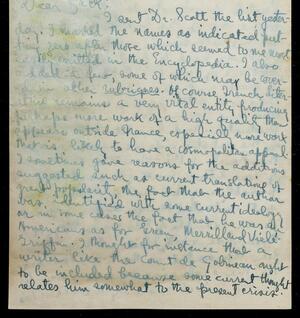 Dear Jack:
I sent Dr. Scott the list yester-
day. I marked the names as indicated put-
ting
after those which seemed to me most
to be omitted in the encyclopedia. I also
added a few, some of which may be over-
in other rubriques. Of course French liter-
ature remains a very vital entity producing
perhaps more work of a high quality than
appears outside France, especially more work
that is likely to have a cosmopolitan appeal
I sometimes gave reasons for the additions
suggested such as current translating of
great popularity, the fact that the author
was identified with some current ideology
or in some cases the fact that he was a
Americans as for even Merrill and Vielé-
Griffin. I thought for instance that a
writer like the Comte de Gobineau ought
to be included because some current thought
relates him somewhat to the present crisis.